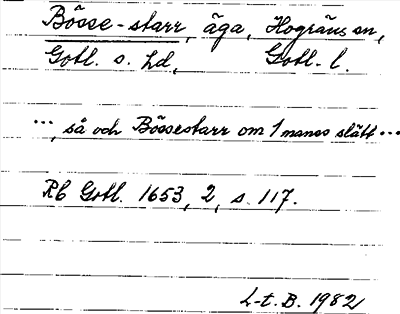 Bösse-starr, äga, Hogräns sn,
Gotl. s. hd, Gotl. l.
..., så och Bössestarr om 1 manss slått ...
Rb Gotl. 1653, 2, s. 117.
L-t. B. 1982